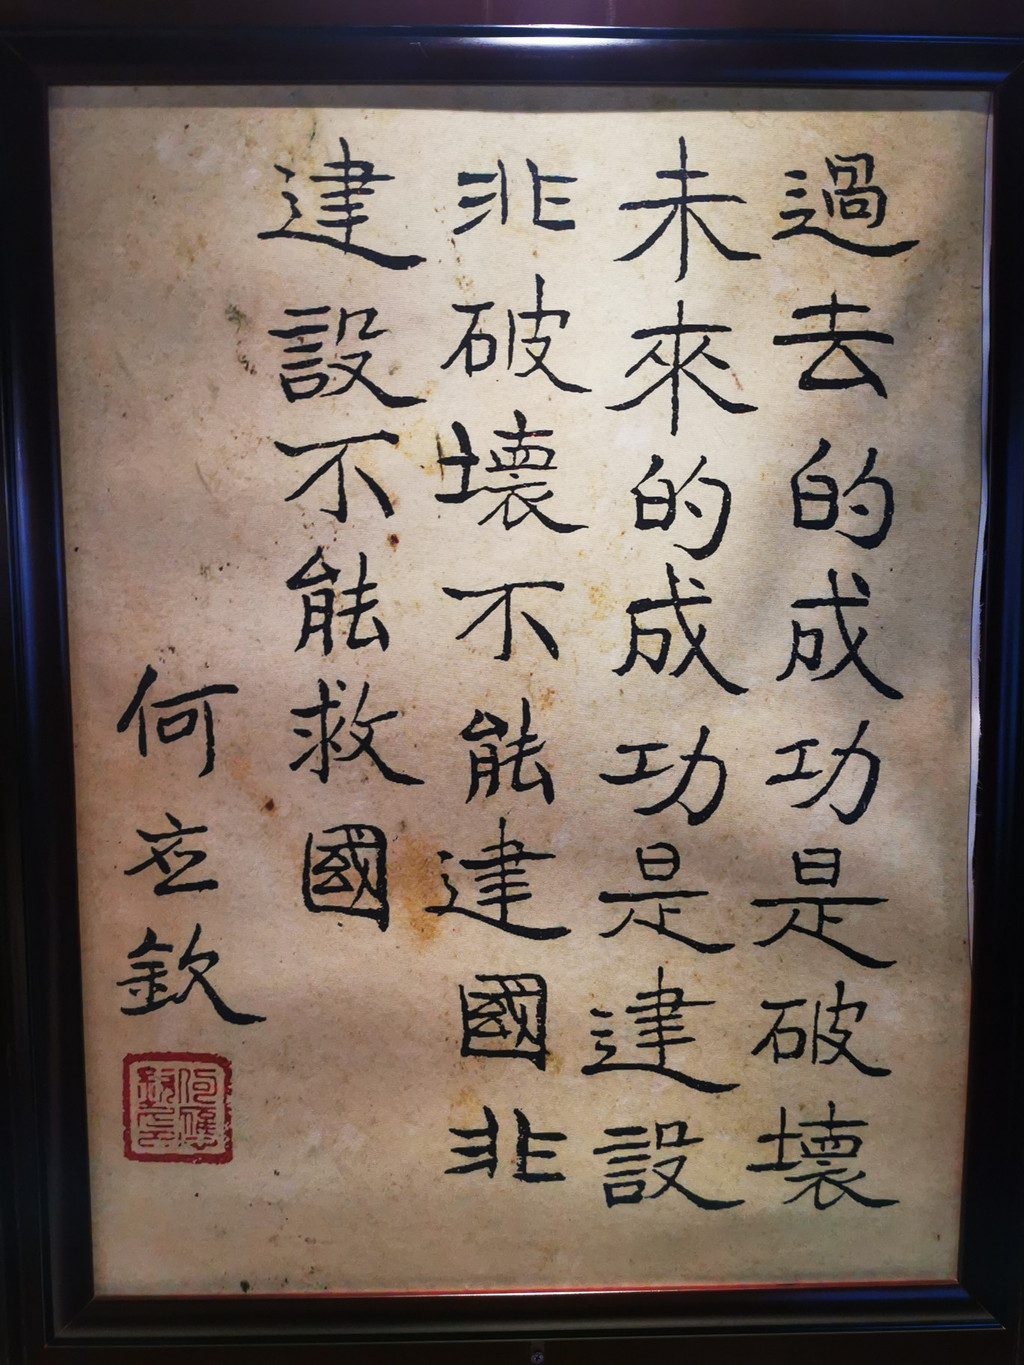 過去的成功是破壞
未來的成功是建設
非破壞不能建國非
建設不能救國
何应欽